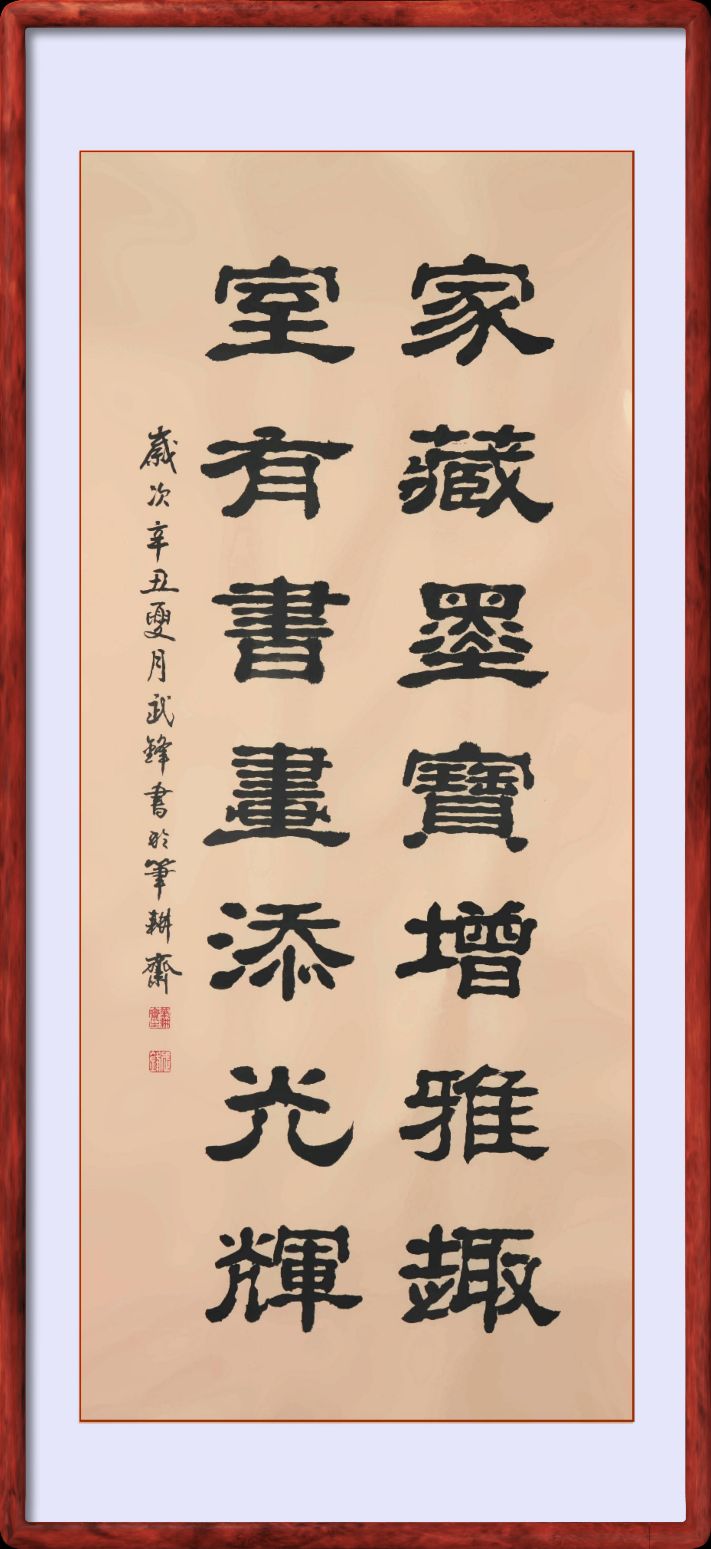 家藏墨寶增雅趣
室有書畫添光輝
歲次辛丑夏月武鋒書於筆耕齋